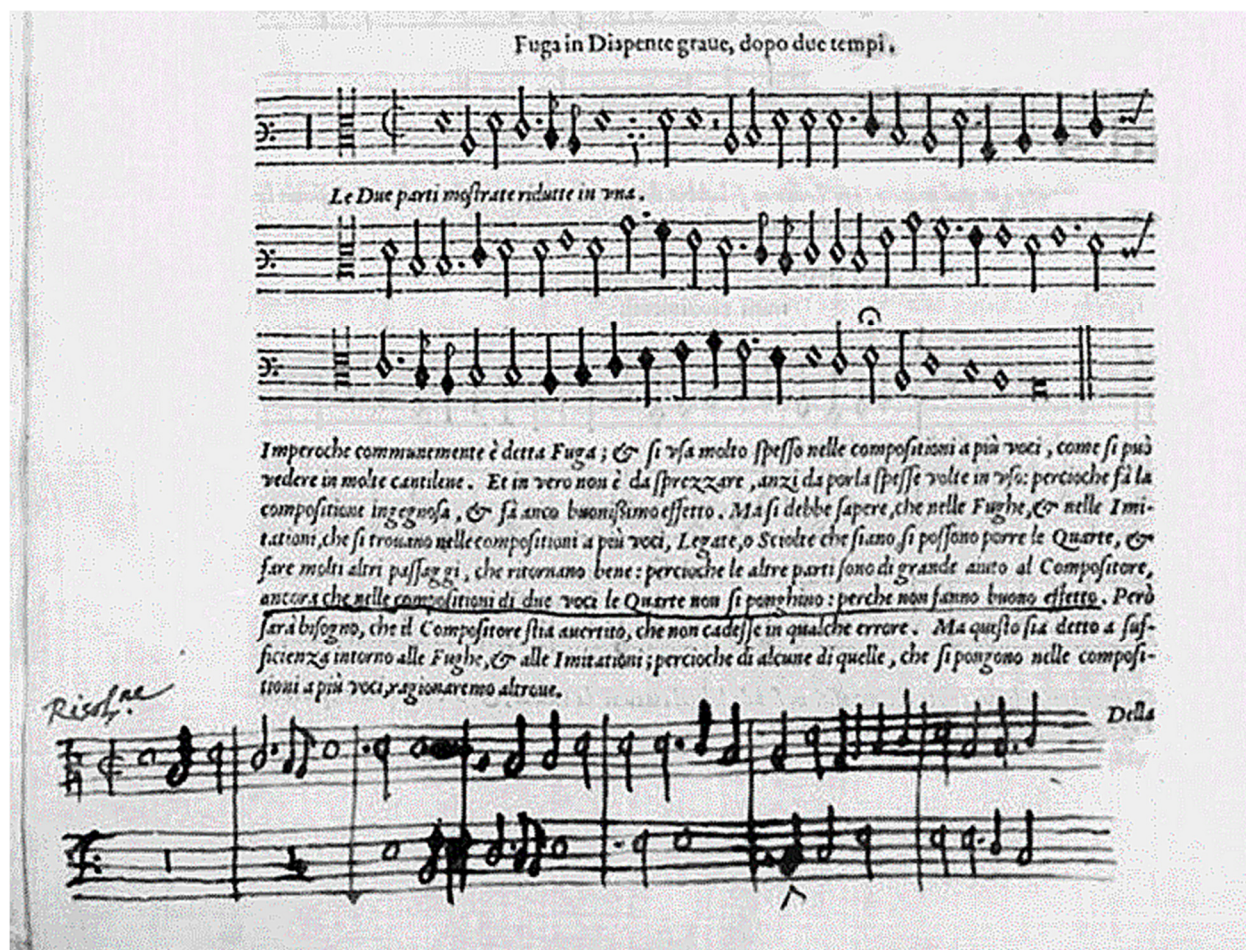 Fuga in Diapente graue, dopo due tempi.
Le Due parti mostrate ridutte in vna.
Imperoche communemente è detta Fuga; & si vsa molto spesso nelle compositioni a più voci, come si può
vedere in molte cantilene. Et in vero non è da sprezzare, anzi da porla spesse volte in vso: percioche fà la
compositione ingegnosa, & fà anco buonissimo effetto. Ma si debbe sapere, che nelle Fughe, & nelle Imi-
tationi, che si trouano nelle compositioni a più voci, Legate, o Sciolte che siano, si possono porre le Quarte, &
fare molti altri passaggi, che ritornano bene: percioche le altre parti sono di grande aiuto al Compositore,
ancora che nelle compositioni di due voci le Quarte non si ponghino: perche non fanno buono effetto. Però
sarà bisogno, che il Compositore stia auertito, che non cadesse in qualche errore. Ma questo sia detto a suf-
ficienza intorno alle Fughe, & alle Imitationi; percioche di alcune di quelle, che si pongono nelle composi-
tioni a più voci, ragionaremo altroue.
Della